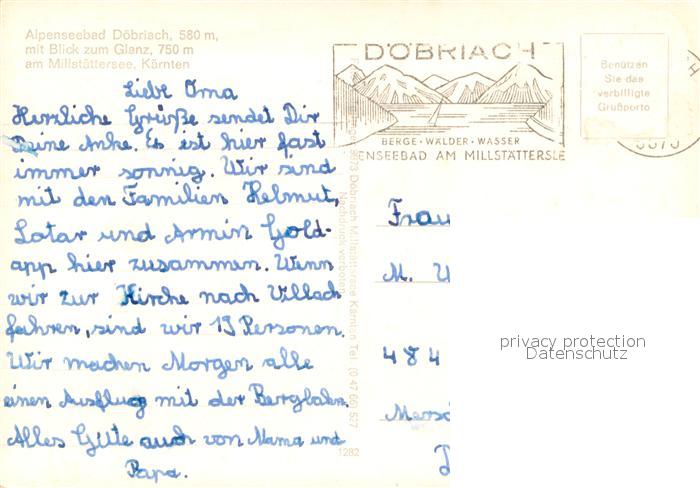 Alpenseebad Döbriach, 580 m,
mit Blick zum Glanz, 750 m
am Millstättersee, Kärnten
DÖBRIACH
BERGE · WÄLDER · WASSER
ENSEEBAD AM MILLSTÄTTERSE
Benützen
Sie das
verbilligte
Grußporto
Liebe Oma
Herzliche Grüße sendet Dir
Deine Anke. Es ist hier fast
immer sonnig. Wir sind
mit den Familien Helmut,
Lotar und Armin Gold-
app hier zusammen. Wenn
wir zur Kirche nach Villach
fahren, sind wir 19 Personen.
Wir machen Morgen alle
einen Ausflug mit der Bergbahn.
Alles Gute auch von Mama und
Papa.
9873 Döbriach Millstättersee Kärnten Tel. (0 47 66) 527
Nachdruck verboten
1282
Frau
M.
484
privacy protection
Datenschutz